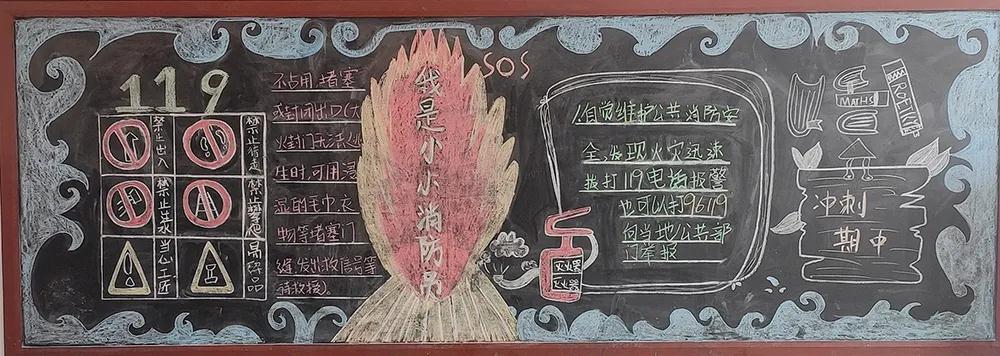 119
禁止出入
禁止
禁止
禁止
当心工匠
品
不占用,堵塞
或封闭出口(大
火封门无法逃
生时,可用浸
湿的毛巾、衣
物等堵塞门
缝,发出求救信号等
待救援).
我是小小消防员
SOS
自觉维护公共消防安
全,发现火灾迅速
拨打119电话报警
也可以打96119
向当地公共部
门举报
灭火器
灭火器
MATHS
冲刺
期中